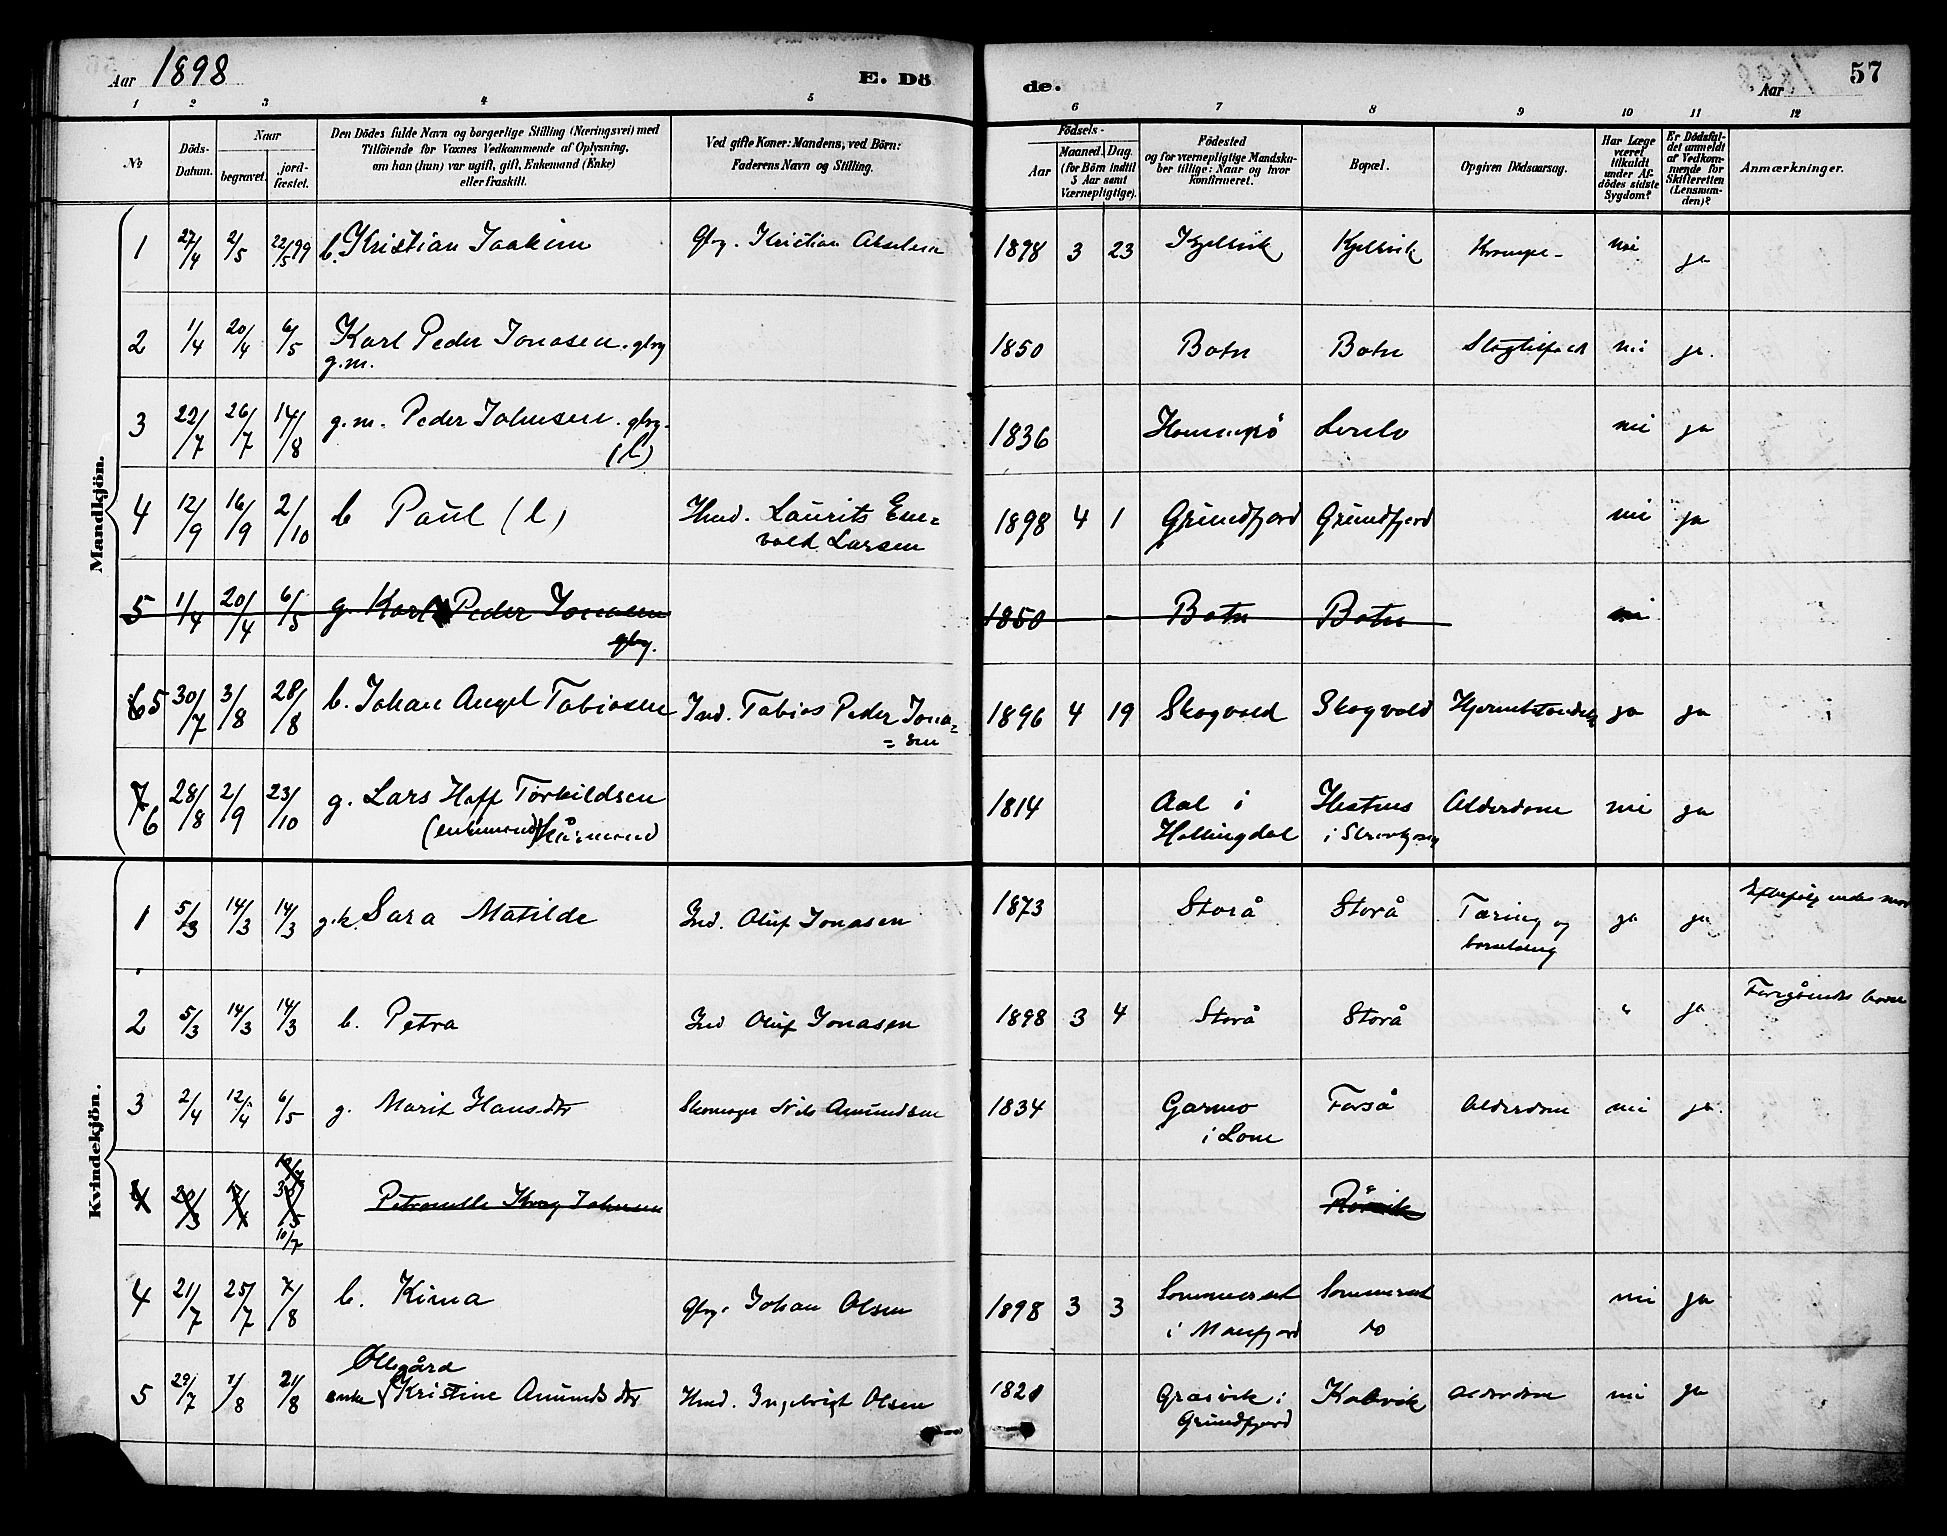 Aar 1898
E. Dö
de.
Aar
57
1 2 3 4 5 6 7 8 9 10 11 12
No
Döds-
Datum.
Naar
begravet.
jord-
fæstet.
Den Dödes fulde Navn og borgerlige Stilling (Næringsvei) med
Tilföiende for Voxnes Vedkommende af Oplysning,
om han (hun) var ugift, gift, Enkemand (Enke)
eller fraskilt.
Ved gifte Koner: Mandens, ved Börn:
Faderens Navn og Stilling.
Födsels-
Aar
Maaned.
Dag.
(for Börn indtil
5 Aar samt
Værnepligtige).
Födested
og for værnepligtige Mandska-
ber tillige: Naar og hvor
konfirmeret.
Bopæl.
Opgiven Dödsaarsag.
Har Læge
været
tilkaldt
under Af-
dödes sidste
Sygdom?
Er Dödsfal-
det anmeldt
af Vedkom-
mende for
Skifteretten
(Lensman-
den)?
Anmærkninger.
Mandkjön.
1 27/4 2/5 22/5 99 b. Kristian Joakim Gbrg. Kristian Akselsen 1898 3 23 Kjelvik Kjelvik Krampe nei ja
2 1/4 20/4 6/5 Karl Peder Jonasen. gbrg
g.m.
1850 Botn Botn nei ja.
3 22/7 26/7 14/8 g.m. Peder Johnsen. gbrg.
(l)
1836 nei ja
4 12/9 16/9 2/10 b Paul (l) Husd. Laurits Ene=
vold Larsen
1898 4 1 Grundfjord Grundfjord nei ja
5 1/4 20/4 6/5 g. Karl Peder Jonasen
gbrg.
1850 - - Botn Botn nei
6 5 30/7 3/8 28/8 b. Johan Angel Tobiasen Ind. Tobias Peder Jona=
=sen
1896 4 19 Skogvold Skogvold ja ja
7 6 28/8 2/9 23/10 g. Lars Hoff Torkildsen
(enkemand) kårmand
1814 Aal i
Hallingdal
Hestnes
Alderdom nei ja
Kvindekjön.
1 5/3 14/3 14/3 g.k. Sara Matilde Ind. Oluf Jonasen 1873 Storå Storå Tæring og
ja ja
2 5/3 14/3 14/3 b. Petra Ind Oluf Jonasen 1898 3 4 Storå Storå " ja
3 2/4 12/4 6/5 g. Marit Hansdtr Skomager Nils Amundsen 1834 Garmo
i Lom
Forså Alderdom nei ja
4 20/3 30/5
10/7
Petronelle Krog Johnsen
Rörvik
4 21/7 25/7 7/8 b. Kima Gbrg. Johan Olsen 1898 3 3 Sommerset
i Manfjord
Sommerset
do
nei ja
5 29/7 1/8 21/8 Ollegård
enke Kristine Amundsdtr Husd. Ingebrigt Olsen 1821 Græsvik i
Grundfjord
Kalvik Alderdom nei ja